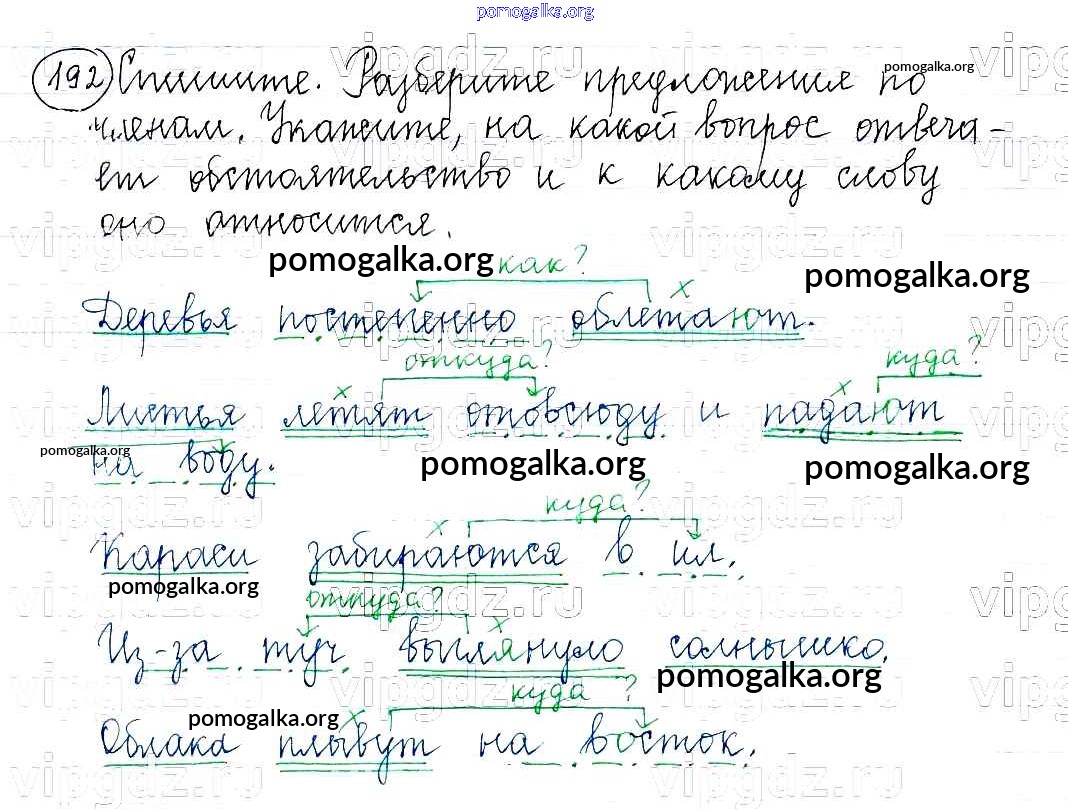 pomogalka.org
192 Спишите. Разберите предложения по
pomogalka.org
членам. Укажите, на какой вопрос отвеча-
ет обстоятельство и к какому слову
оно относится.
pomogalka.org
как?
pomogalka.org
х
Деревья постепенно облетают.
откуда?
куда?
х
х
Листья летят отовсюду и падают
pomogalka.org
на воду.
pomogalka.org
pomogalka.org
куда?
х
Караси забираются в ил.
pomogalka.org
откуда?
х
Из-за туч выглянуло солнышко.
pomogalka.org
куда ?
pomogalka.org
х
Облака плывут на восток.
vipgdz.ru